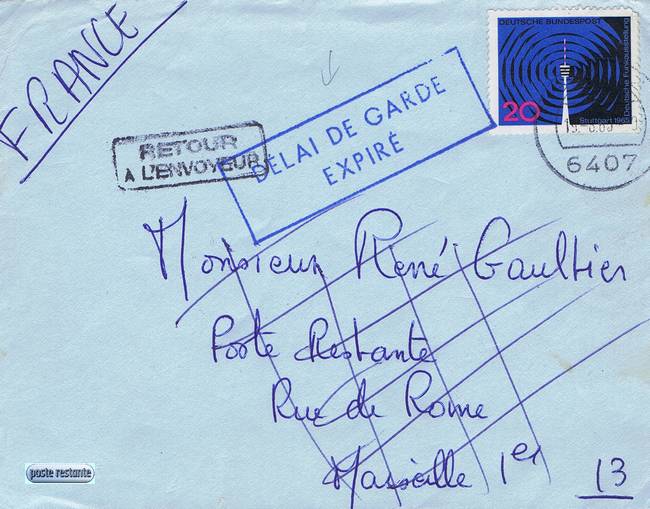 FRANCE
DEUTSCHE BUNDESPOST
Deutsche Funkausstellung
20
Stuttgart 1965
6407
DÉLAI DE GARDE
EXPIRÉ
RETOUR
A L'ENVOYEUR
Monsieur René Gaultier
Poste Restante
Rue de Rome
Marseille 1er 13
poste restante